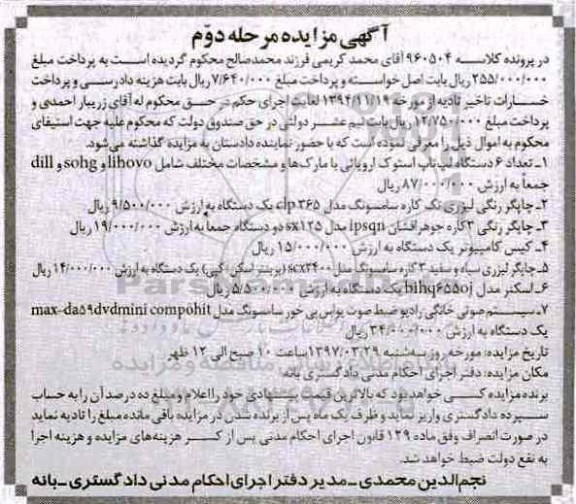 آگهی مزایده مرحله دوّم
در پرونده کلاسه ۹۶۰۵۰۴ آقای محمد کریمی فرزند محمدصالح محکوم گردیده است به پرداخت مبلغ
۲۵۵/۰۰۰/۰۰۰ ریال بابت اصل خواسته و پرداخت مبلغ ۷/۶۴۰/۰۰۰ ریال بابت هزینه دادرسی و پرداخت
خسارات تاخیر تادیه از مورخه ۱۳۹۴/۱۱/۱۹ لغایت اجرای حکم در حق محکوم له آقای زریبار احمدی و
پرداخت مبلغ ۱۲/۷۵۰/۰۰۰ ریال بابت نیم عشر دولتی در حق صندوق دولت که محکوم علیه جهت استیفای
محکوم به اموال ذیل را معرفی نموده است که با حضور نماینده دادستان به مزایده گذاشته می‌شود.
۱ـ تعداد ۶ دستگاه لپ‌تاپ استوک اروپائی با مارک‌ها و مشخصات مختلف شامل lihovo و sohg و dill
جمعاً به ارزش ۸۷/۰۰۰/۰۰۰ ریال
۲ـ چاپگر رنگی لیزری تک کاره سامسونگ مدل clp ۳۶۵ یک دستگاه به ارزش ۹/۵۰۰/۰۰۰ ریال
۳ـ چاپگر رنگی ۳کاره جوهرافشان ipsqn مدل sx۱۲۵ دو دستگاه جمعاً به ارزش ۱۹/۰۰۰/۰۰۰ ریال
۴ـ کیس کامپیوتر یک دستگاه به ارزش ۱۵/۰۰۰/۰۰۰ ریال
۵ـ چاپگر لیزری سیاه و سفید ۳ کاره سامسونگ مدل scx۳۴۰۰ (پرینتر اسکن، کپی) یک دستگاه به ارزش ۱۴/۰۰۰/۰۰۰ ریال
۶ـ اسکنر مدل bihq۶۵۵oj یک دستگاه به ارزش ۵/۵۰۰/۰۰۰ ریال
۷ـ سیستم صوتی خانگی رادیو ضبط صوت یواس بی خور سامسونگ مدل max-da۵۹dvdmini compohit
یک دستگاه به ارزش ۳۴/۰۰۰/۰۰۰ ریال
تاریخ مزایده: مورخه روز سه‌شنبه ۱۳۹۷/۰۳/۲۹ ساعت ۱۰ صبح الی ۱۲ ظهر
مکان مزایده: دفتر اجرای احکام مدنی دادگستری بانه
برنده مزایده کسی خواهد بود که بالاترین قیمت پیشنهادی خود را اعلام و مبلغ ده درصد آن را به حساب
سپرده دادگستری واریز نماید و ظرف یک ماه پس از برنده شدن در مزایده باقی مانده مبلغ را تادیه نماید
در صورت انصراف وفق ماده ۱۲۹ قانون اجرای احکام مدنی پس از کسر هزینه‌های مزایده و هزینه اجرا
به نفع دولت ضبط خواهد شد.
نجم‌الدین محمدی ـ مدیر دفتر اجرای احکام مدنی دادگستری ـ بانه